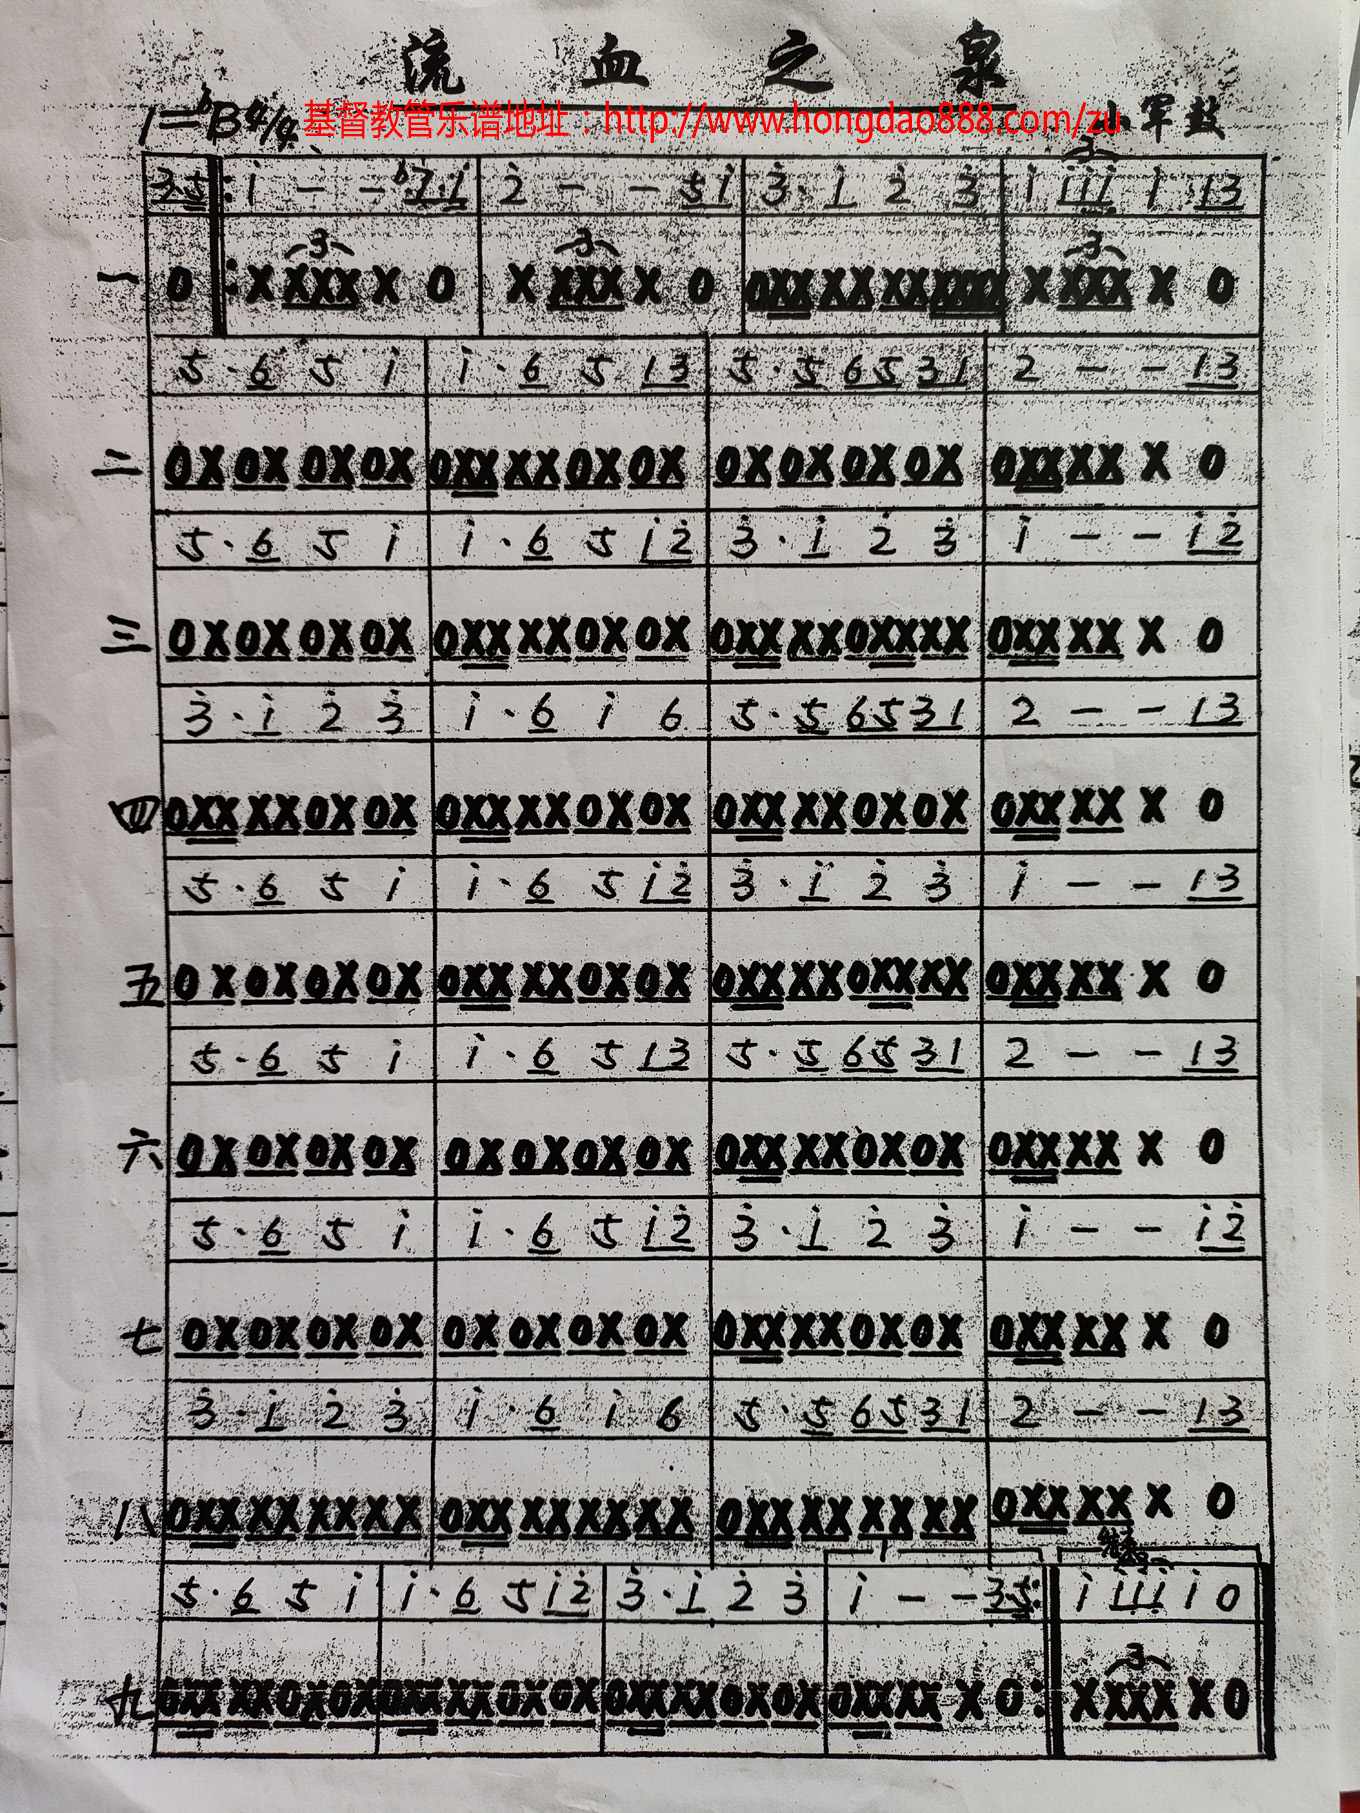 流血之泉
1=♭B4/4 基督教管乐谱地址：http://www.hongdao888.com/zu 小军鼓
3·5 ‖: i̇ - - ♭7·i̇ | 2̇ - - 5i̇ | 3̇·i̇ 2̇ 3̇ | i̇ i̇i̇i̇ i̇ 13
一 0 ‖: X XXX X 0 | X XXX X 0 | 0XX XX XX XXXX | X XXX X 0
5·6 5 i̇ | i̇·6 5 13 | 5·5 65 31 | 2 - - 13
二 0X 0X 0X 0X | 0XX XX 0X 0X | 0X 0X 0X 0X | 0XX XX X 0
5·6 5 i̇ | i̇·6 5 i̇2̇ | 3̇·i̇ 2̇ 3̇ | i̇ - - i̇2̇
三 0X 0X 0X 0X | 0XX XX 0X 0X | 0XX XX 0XX XX | 0XX XX X 0
3̇·i̇ 2̇ 3̇ | i̇·6 i̇ 6 | 5·5 65 31 | 2 - - 13
四 0XX XX 0X 0X | 0XX XX 0X 0X | 0XX XX 0X 0X | 0XX XX X 0
5·6 5 i̇ | i̇·6 5 i̇2̇ | 3̇·i̇ 2̇ 3̇ | i̇ - - 13
五 0X 0X 0X 0X | 0XX XX 0X 0X | 0XX XX 0XX XX | 0XX XX X 0
5·6 5 i̇ | i̇·6 5 13 | 5·5 65 31 | 2 - - 13
六 0X 0X 0X 0X | 0X 0X 0X 0X | 0XX XX 0X 0X | 0XX XX X 0
5·6 5 i̇ | i̇·6 5 i̇2̇ | 3̇·i̇ 2̇ 3̇ | i̇ - - i̇2̇
七 0X 0X 0X 0X | 0X 0X 0X 0X | 0XX XX 0X 0X | 0XX XX X 0
3̇·i̇ 2̇ 3̇ | i̇·6 i̇ 6 | 5·5 65 31 | 2 - - 13
八 0XX XX XX XX | 0XX XX XX XX | 0XX XX XX XX | 0XX XX X 0
5·6 5 i̇ | i̇·6 5 i̇2̇ | 3̇·i̇ 2̇ 3̇ | i̇ - - 3·5 :‖ i̇ i̇i̇i̇ i̇ 0
九 0XX XX 0X 0X | 0XX XX 0X 0X | 0XX XX 0X 0X | 0XX XX X 0 :‖ X XXX X 0